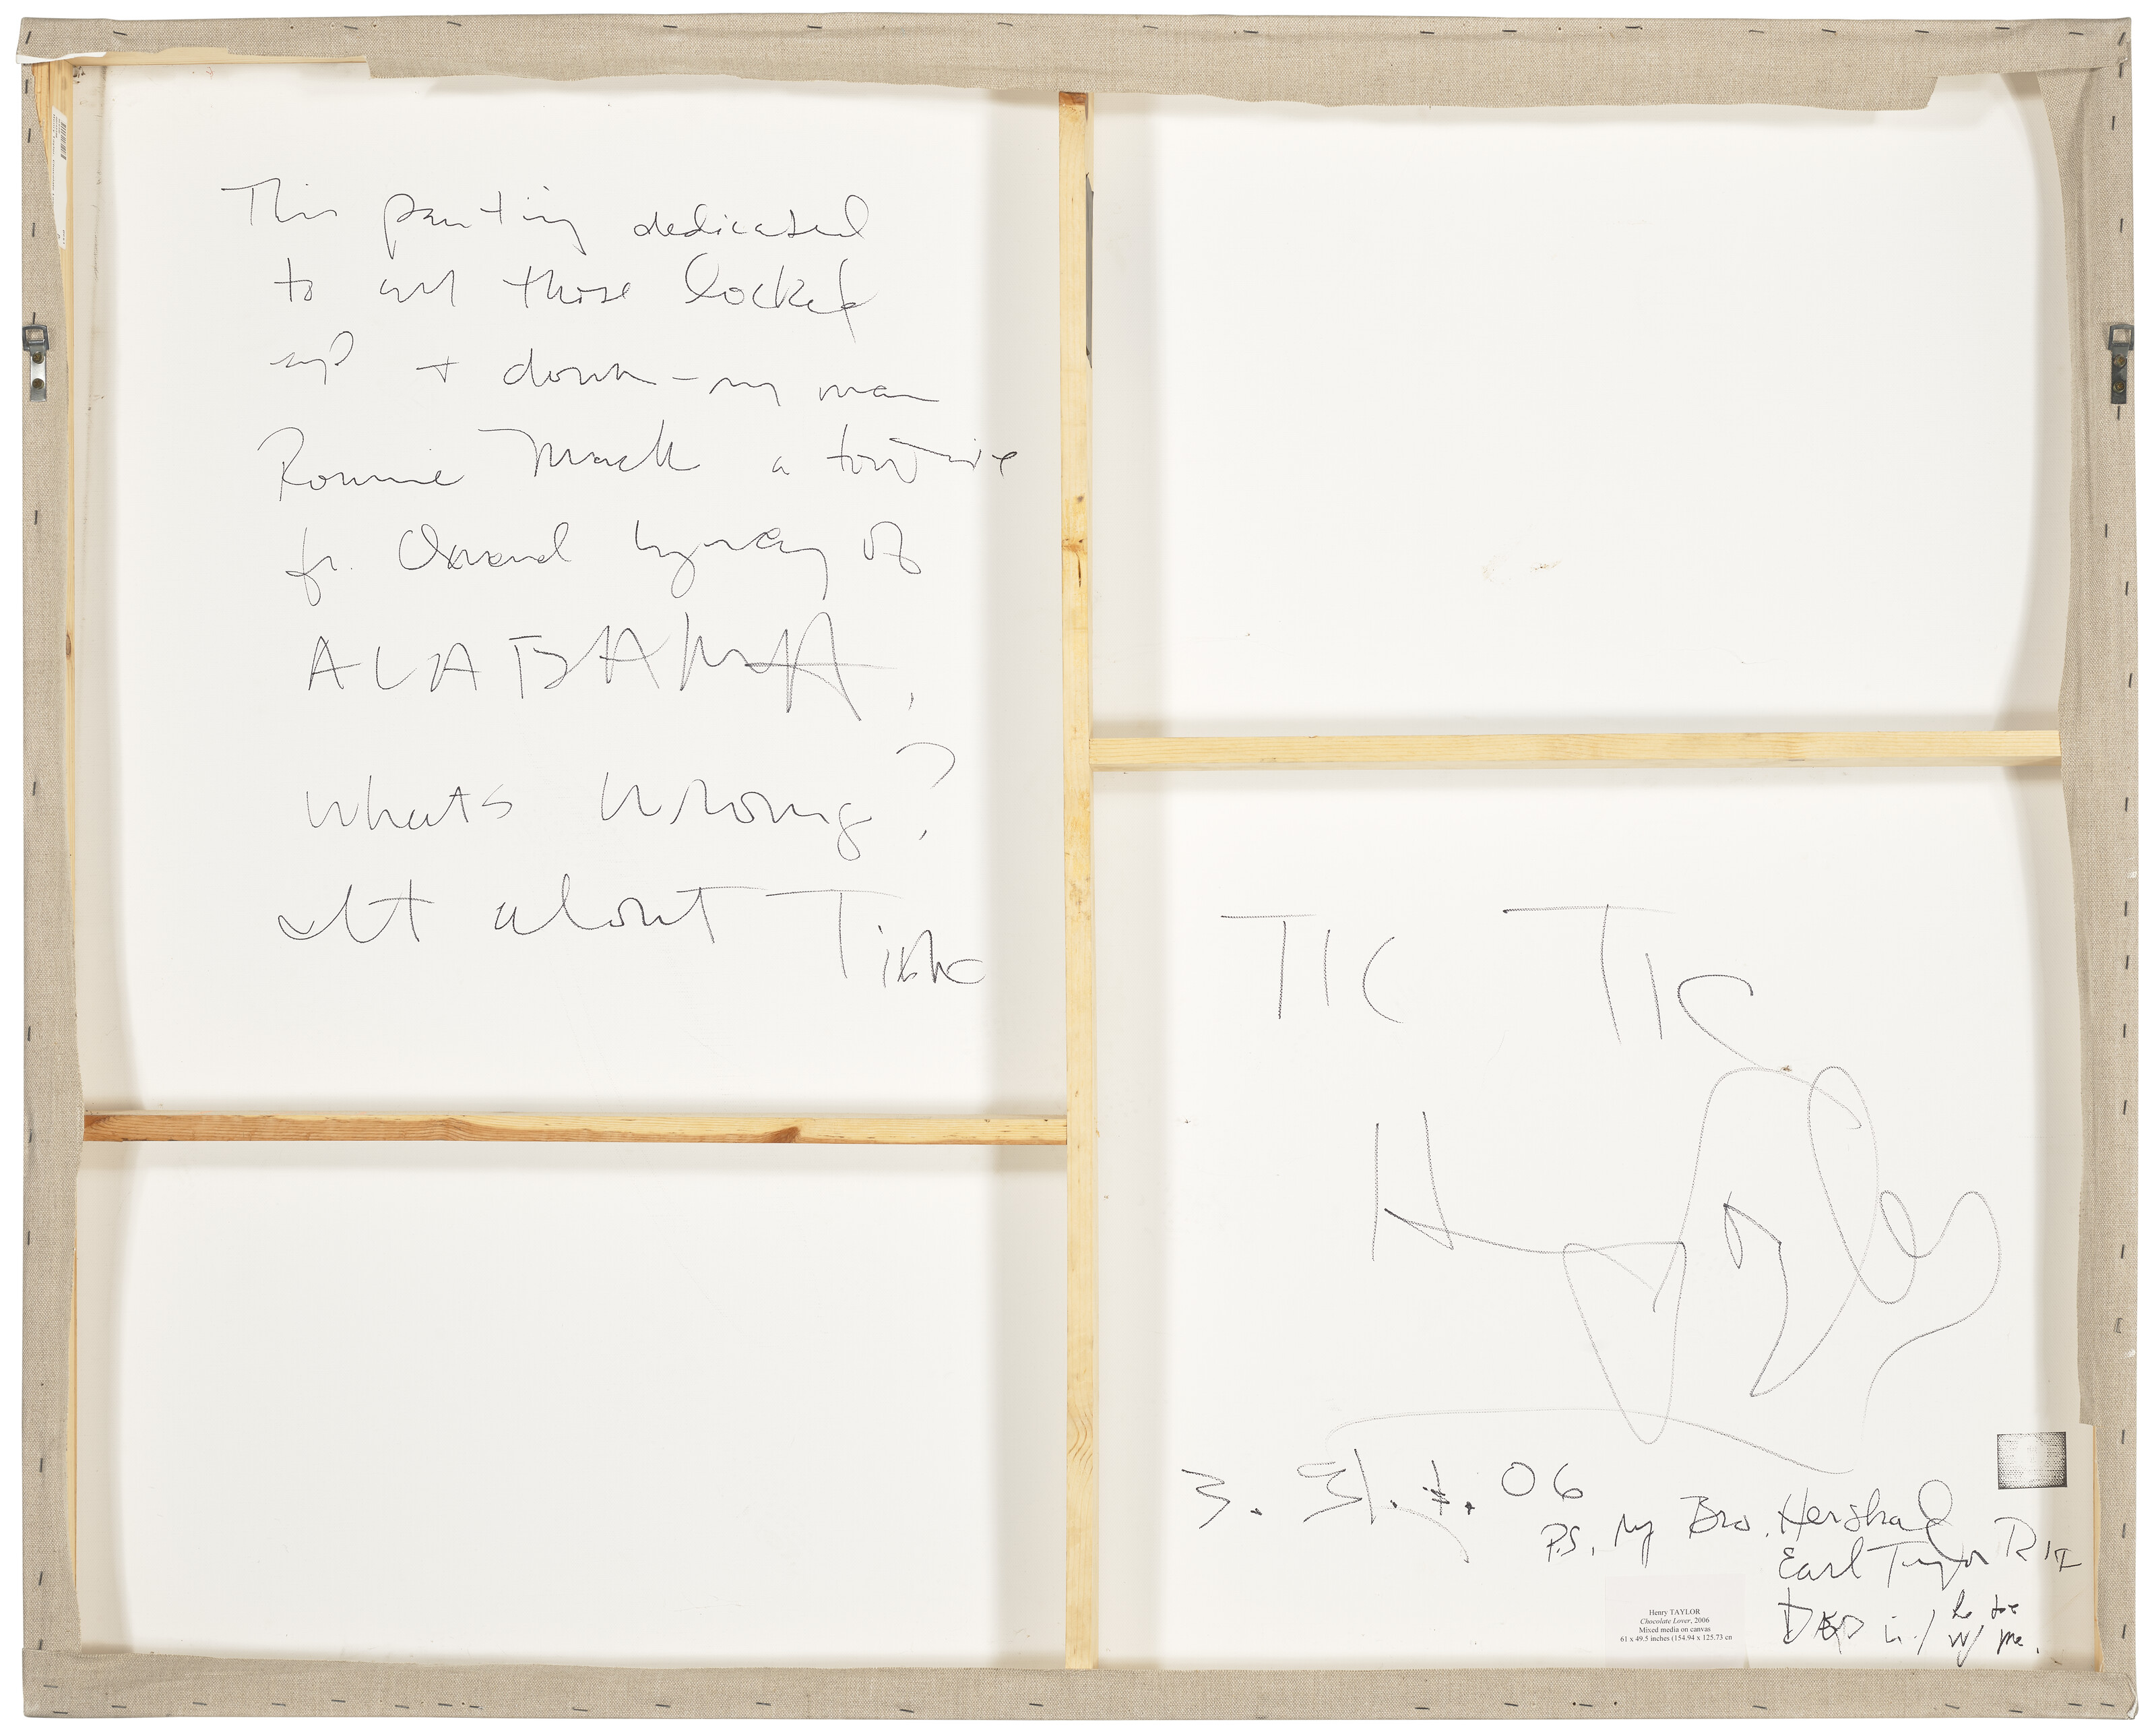 This painting dedicated
to all those locked
up + down - my man
Ronnie Mack a
fr. Oxnard by way of
ALABAMA,
whats wrong?
It about Time
TIC TIC
H Taylor
3. 31. 06
P.S. My Bro. Hershal
Earl Taylor R
DAD
w/ me.
Henry TAYLOR
Chocolate Lover, 2006
Mixed media on canvas
61 x 49.5 inches (154.94 x 125.73 cn